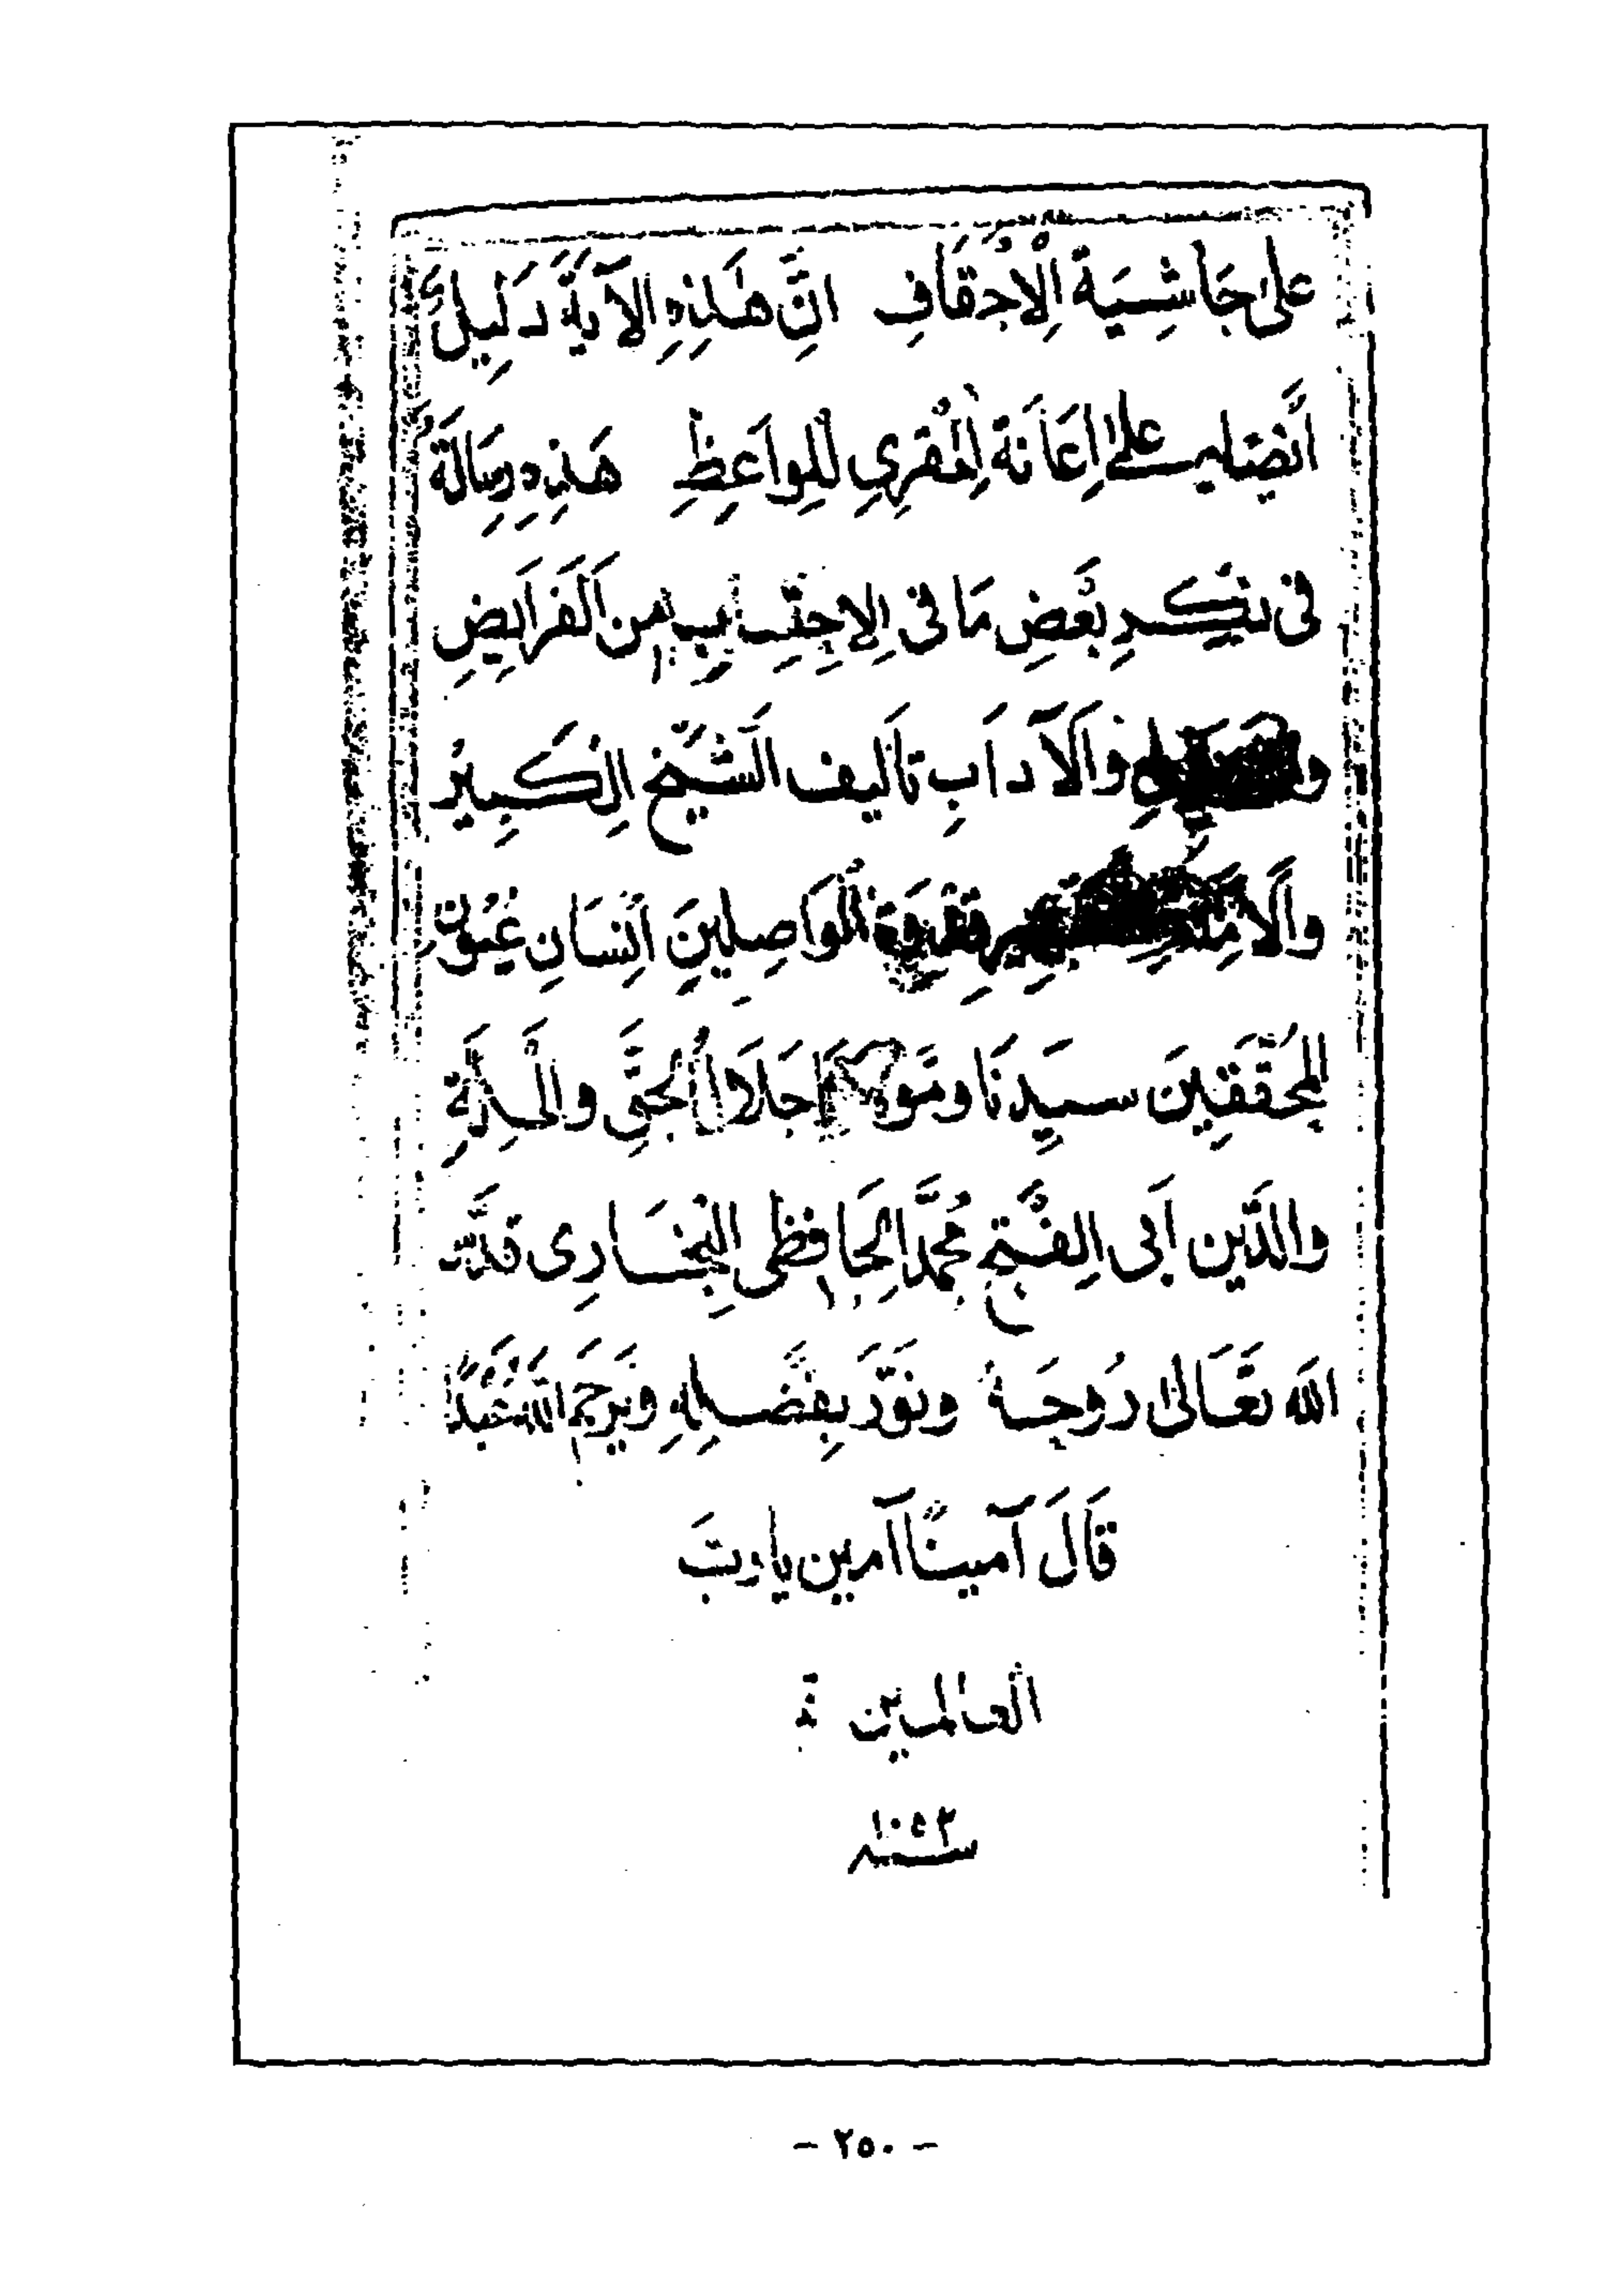 على حَاشِيَةِ الْاَحْقَافِ اِنَّ هٰذِهِ الْآيَةَ دَلِيلٌ
اَيْضًا على اِعَانَةِ الْمُقْرِي لِلْوَاعِظِ هٰذِهِ رِسَالَةٌ
فى ذِكْرِ بَعْضِ مَا فى الْاِحْتِسَابِ مِنَ الْفَرَايِضِ
وَالْآدَابِ تَاْلِيف الشَّيْخِ الْكَبِيرِ
قُدْوَةِ الْوَاصِلِينَ اِنْسَانِ عُيُونِ
الْمُحَقِّقِينَ سَيِّدِنَا وَمَوْلَانَا جَلَالِ الْحَقِّ وَالْمِلَّةِ
وَالدِّين اَبى الْفَتْحِ مُحَمَّد الْحَافِظى الْبُخَارِى قَدَّسَ
الله تَعَالىٰ رُوحَهُ وَنَوَّرَ بِفَضْلِهِ وَيَرْحَمُ اللّٰهُ عَبْدًا
قَالَ آمينًا آمين يا ربَّ
العالمين
سنه ١٠٥٣
- ٢٥٠ -